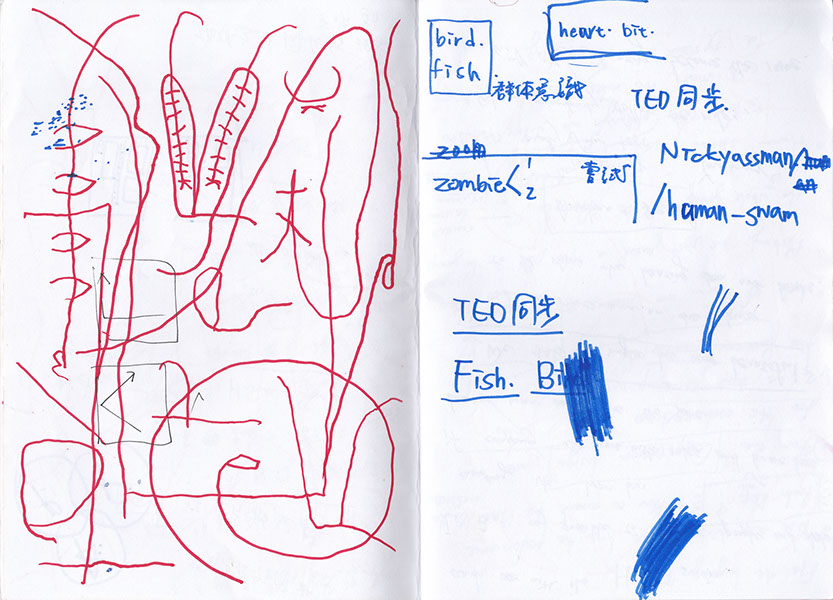 bird.
fish
heart. bit.
群体意识
TED同步.
zoom
zombie< 1 2
尝试
Nickyassman/
/haman-swam
TED同步
Fish. Bi